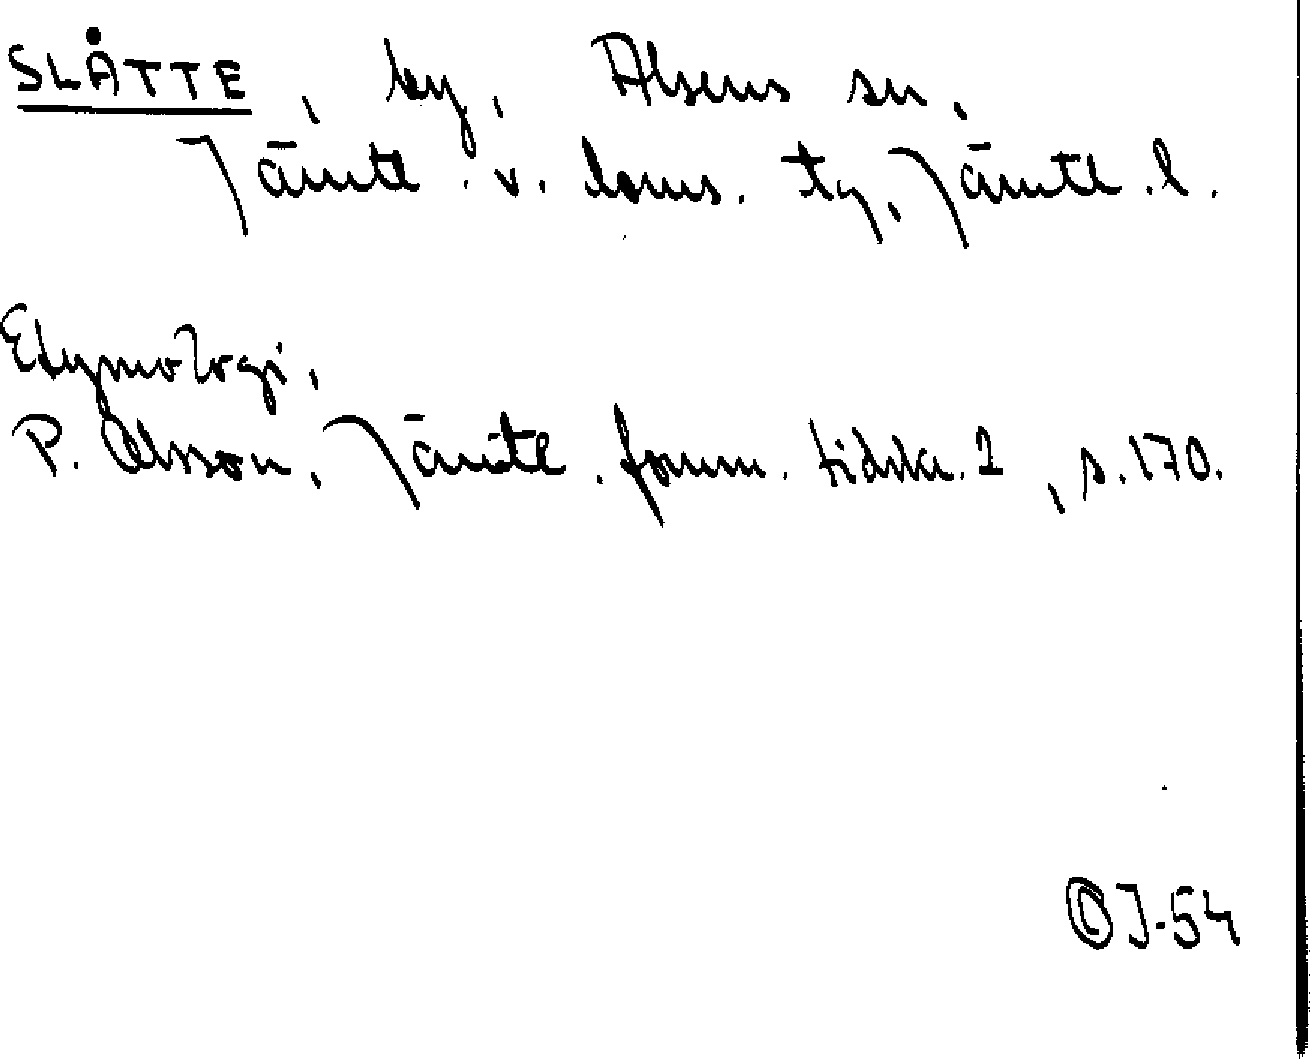 SLÅTTE, by, Alsens sn,
Jämtl. v. doms. tg, Jämtl. l.
Etymologi,
P. Olsson, Jämtl. fornm. tidskr. 2, s. 170.
J-54